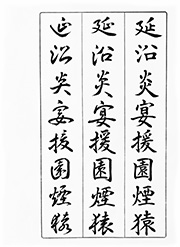 延沿炎宴援園煙猿
延沿炎宴援園煙猿
延沿炎宴援園煙猿